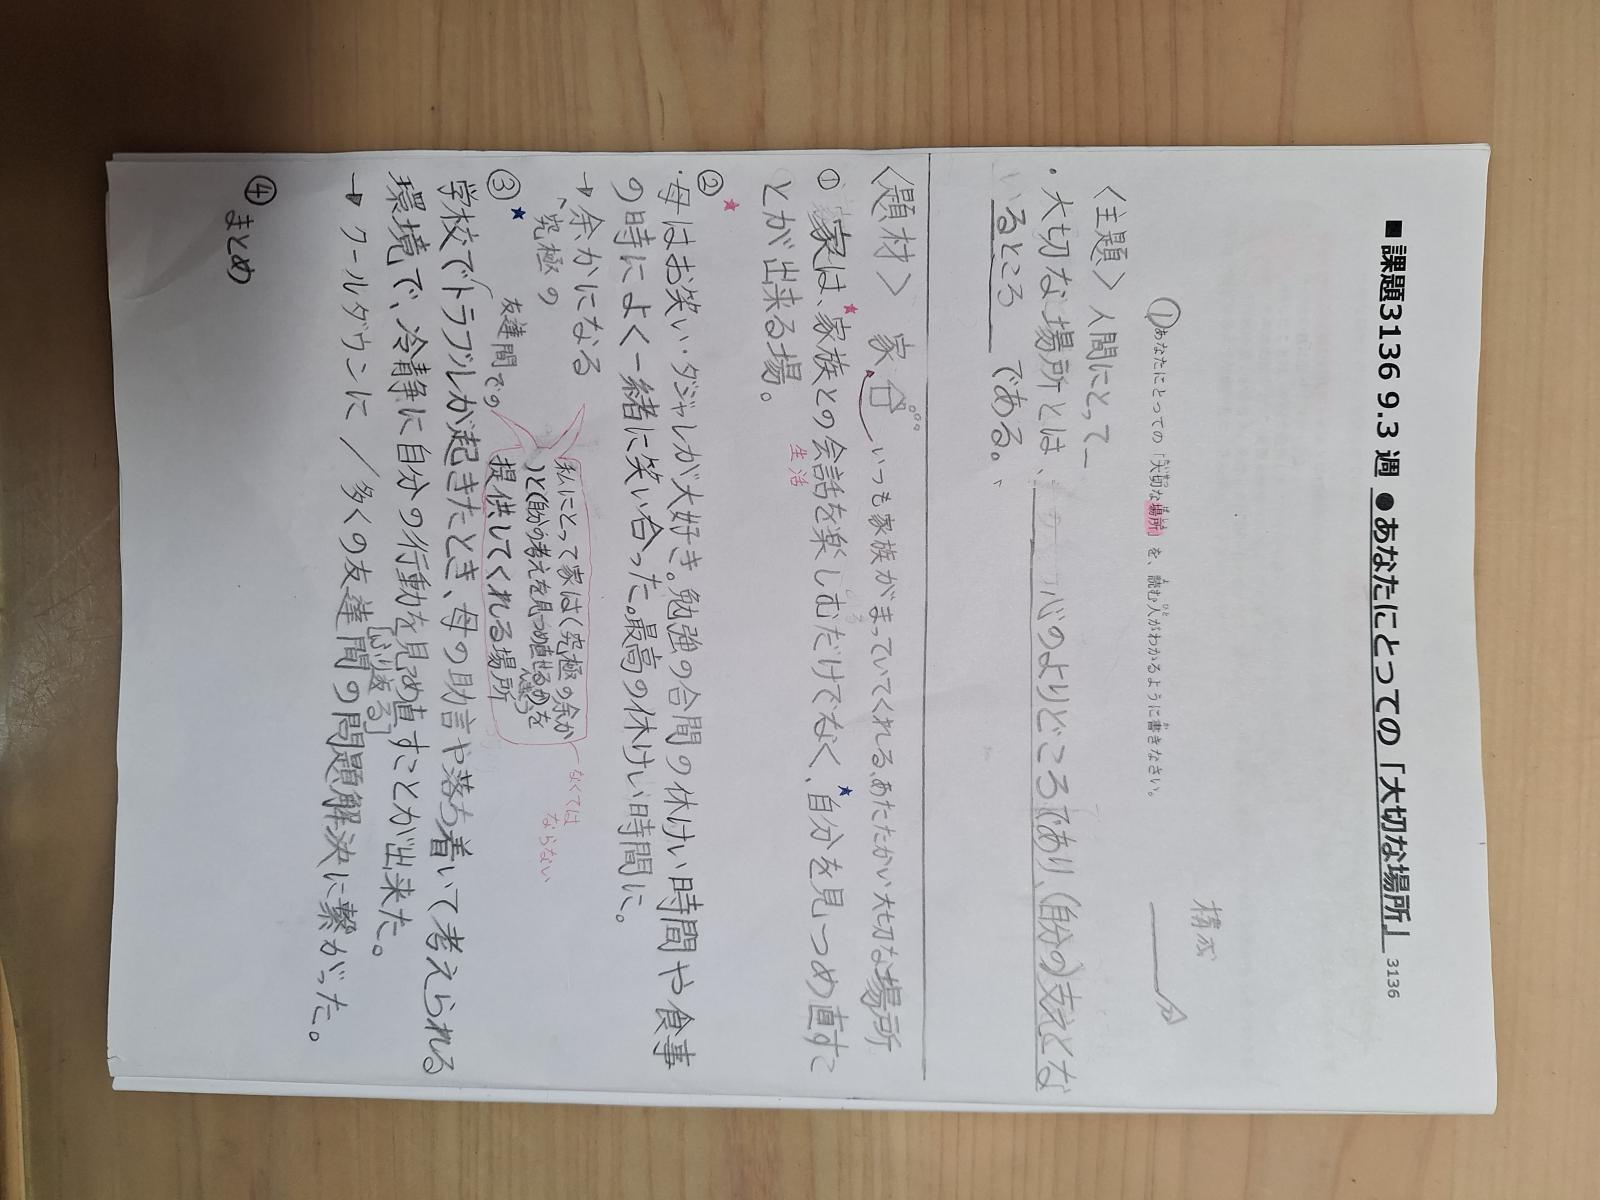 ■ 課題3136 9.3 週 ● あなたにとっての「大切な場所」 3136
構成
①あなたにとっての「大切な場所」を、読む人がわかるように書きなさい。
〈主題〉人間にとって
・大切な場所とは、心のよりどころであり、(自分の)支えとな
いるところ である。
〈題材〉 家 いつも家族がまっていてくれる、あたたかい大切な場所
① 家は、★家族との会話を楽しむだけでなく、★自分を見つめ直すこ
生活
とが出来る場。
② ★
・母はお笑い・ダジャレが大好き。勉強の合間の休けい時間や食事
の時によく一緒に笑い合った。最高の休けい時間に。
→ 余かになる
、究極の
私にとって家は(究極の余か
)と(自分の考えを見つめ直せるの)を
提供してくれる場所
なくては
ならない
③ ★
友達間での
学校でトラブルが起きたとき、母の助言や落ち着いて考えられる
環境で、冷静に自分の行動を見つめ直すことが出来た。
[ふり返る]
→ クールダウンに / 多くの友達間の問題解決に繋がった。
④ まとめ